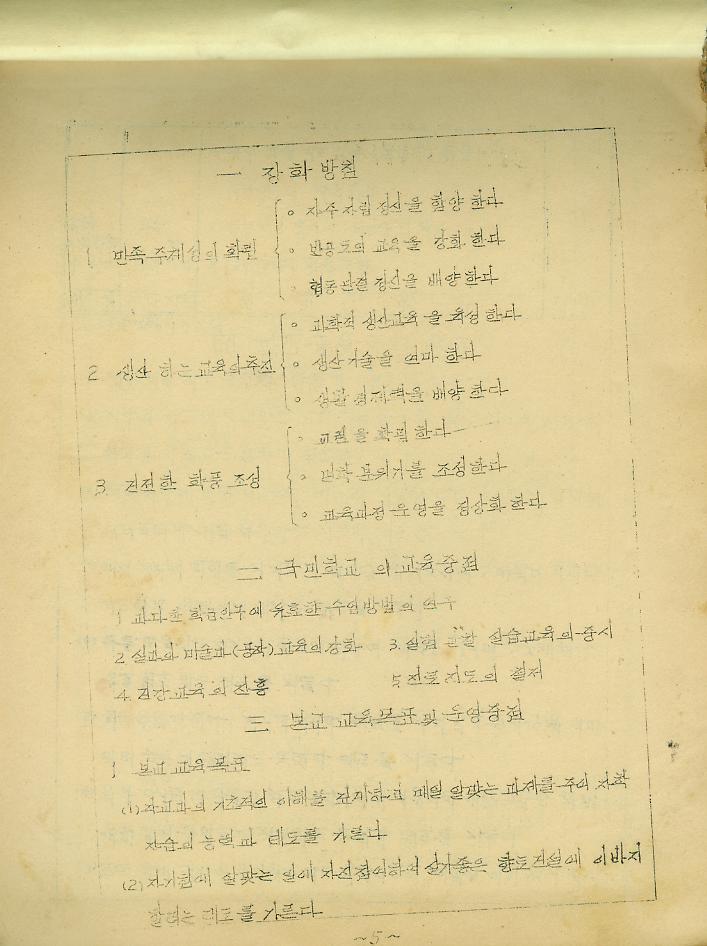 一 장화 방침
1 민족 주체성의 확립
◦ 자주 자립 정신을 함양 한다
◦ 반공 도의 교육을 강화 한다
◦ 협동 단결 정신을 배양 한다
2 생산 하는 교육의 추진
◦ 과학적 생산교육을 육성 한다
◦ 생산 기술을 연마 한다
◦ 생활 경제력을 배양 한다
3. 건전한 학풍 조성
◦ 교권을 확립 한다
◦ 면학 분위기를 조성한다
◦ 교육과정 운영을 정상화 한다
二 국민학교의 교육중점
1 과다한 학급인구에 유효한 수업방법의 연구
2 실과와 미술과(공작) 교육의 강화 3. 실험 관찰 실습교육의 중시
4. 건강 교육의 진흥 5 진로 지도의 철저
三 본교 교육목표 및 운영중점
1 본교 교육 목표
(1) 각교과의 기초적인 이해를 하고 매일 알맞는 과제를 주어 자학
자습의 능력과 태도를 기른다
(2) 자기힘에 알맞는 일에 자진참여하여 향토건설에 이바지
할려는 태도를 기른다
~5~